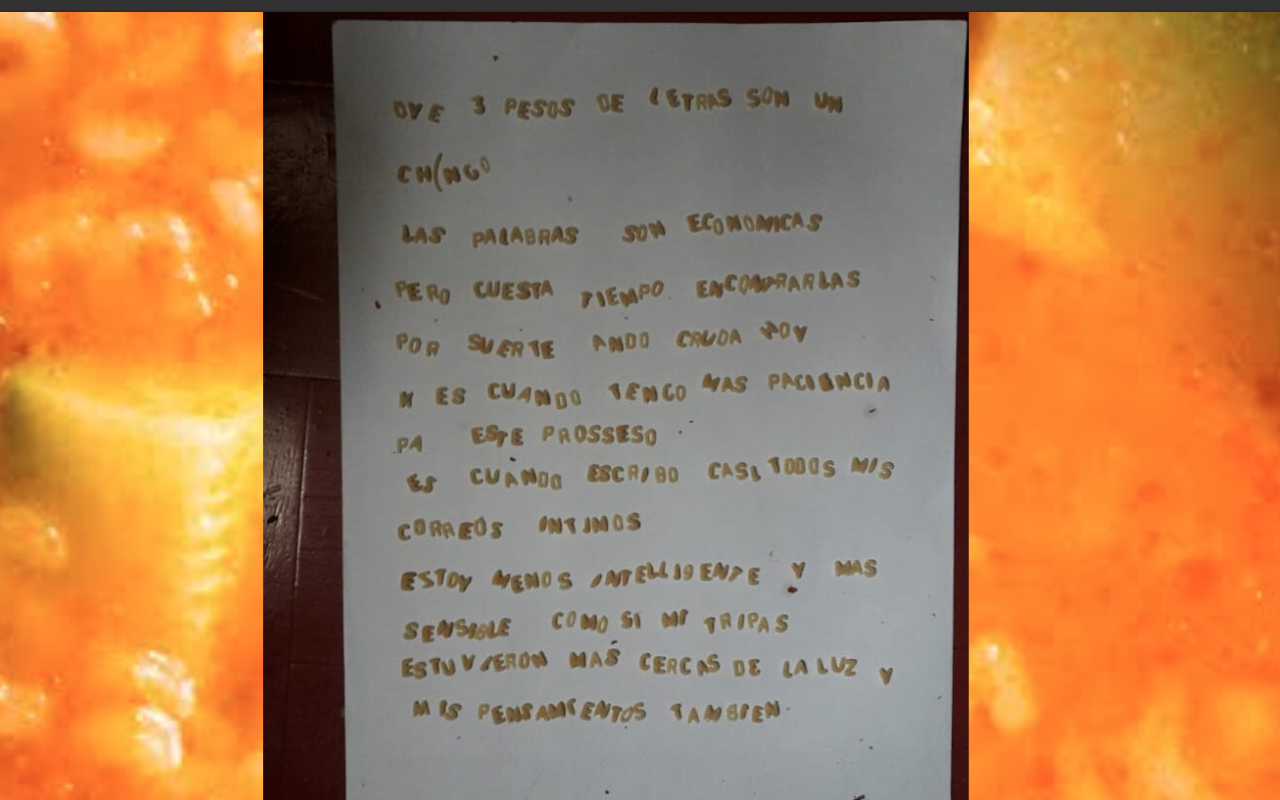 OYE 3 PESOS DE LETRAS SON UN
CHINGO
LAS PALABRAS SON ECONOMICAS
PERO CUESTA TIEMPO ENCONDRARLAS
POR SUERTE ANDO CRUDA HOY
K ES CUANDO TENGO MAS PACIENCIA
PA ESTE PROSSESO
ES CUANDO ESCRIBO CASI TODOS MIS
CORREOS INTIMOS
ESTOY MENOS INTELLIGENTE Y MAS
SENSIBLE COMO SI MI TRIPAS
ESTUVIERON MAS CERCAS DE LA LUZ Y
MIS PENSAMIENTOS TAMBIEN